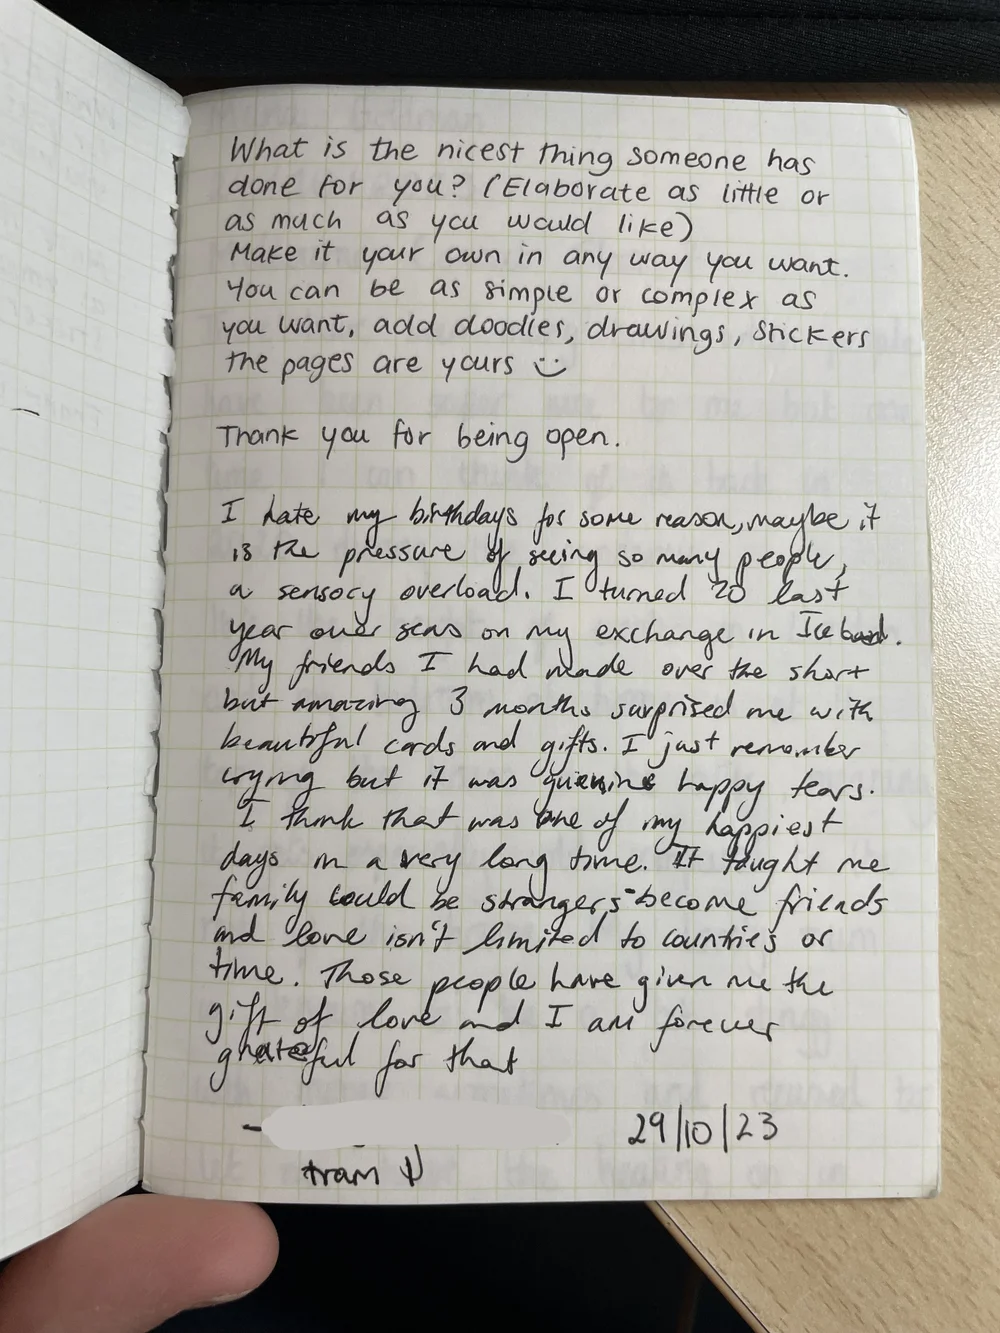 What is the nicest thing someone has
done for you? (Elaborate as little or
as much as you would like)
Make it your own in any way you want.
You can be as simple or complex as
you want, add doodles, drawings, stickers
the pages are yours :)
Thank you for being open.
I hate my birthdays for some reason, maybe it
is the pressure of seeing so many people,
a sensory overload. I turned 20 last
year over seas on my exchange in Iceland.
My friends I had made over the short
but amazing 3 months surprised me with
beautiful cards and gifts. I just remember
crying but it was genuine happy tears.
I think that was one of my happiest
days in a very long time. It taught me
family could be strangers-become friends
and love isn't limited to countries or
time. Those people have given me the
gift of love and I am forever
grateful for that
- 29/10/23
tram